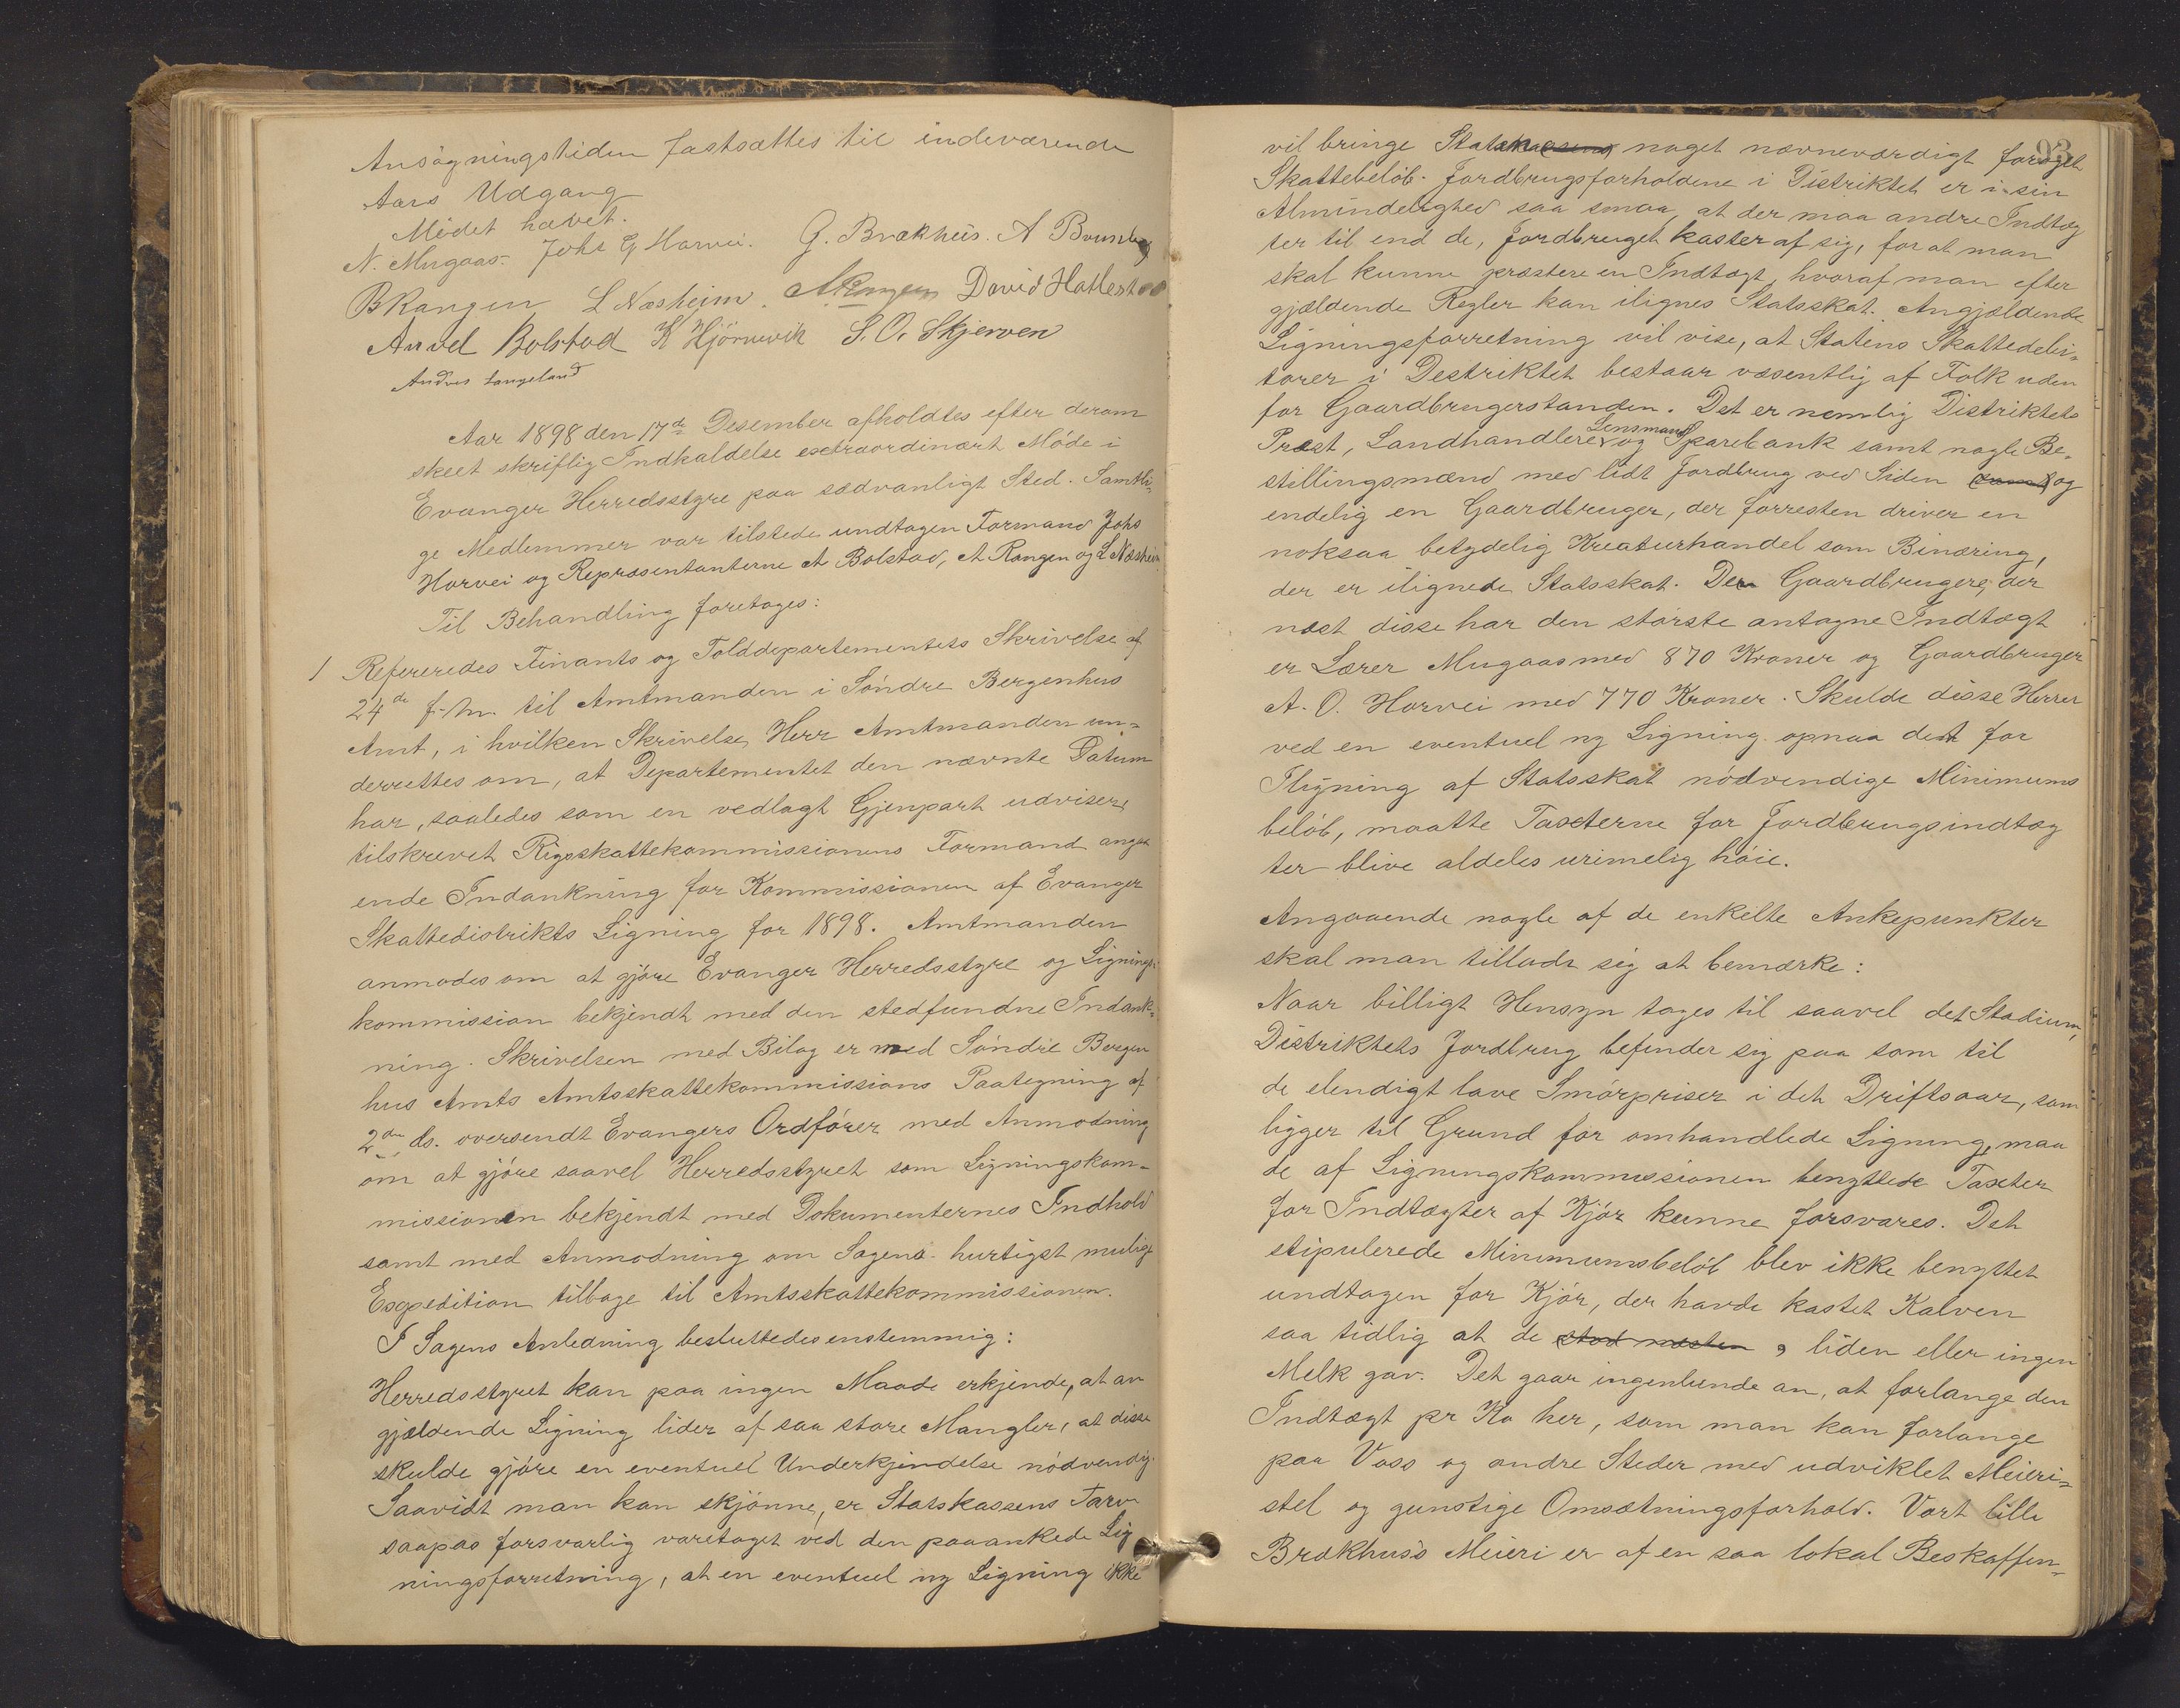 Ansøgningstiden fastsættes til indeværende
Aars Udgang
Mødet hævet.
N. Mugaas. Johs G Horvei. G. Brækhus. A Brunborg
B Rangen L Næsheim. A Rangen David Hatlestad
Anvel Bolstad K Hjørnevik S. O. Skjerven
Andres Langeland
Aar 1898 den 17de Desember afholdtes efter derom
skeet skriftlig Indkaldelse extraordinært Møde i
Evanger Herredsstyre paa sædvanligt Sted. Samtli-
ge Medlemmer var tilstede undtagen Formand Johs
Horvei og Repræsentanterne A Bolstad, A Rangen og L Næsheim
Til Behandling foretoges:
1 Refereredes Finants og Tolddepartementets Skrivelse af
24de f. M. til Amtmanden i Søndre Bergenhus
Amt, i hvilken Skrivelse Herr Amtmanden un-
derrettes om, at Departementet den nævnte Datum
har, saaledes som en vedlagt Gjenpart udviser,
tilskrevet Rigsskattekommissionens Formand angaa
ende Indankning for Kommissionen af Evanger
Skattedistrikts Ligning for 1898. Amtmanden
anmodes om at gjøre Evanger Herredsstyre og Lignings-
kommission bekjendt med den stedfundne Indank-
ning. Skrivelsen med Bilag er med Søndre Bergen
hus Amts Amtsskattekommissions Paategning af
2den ds. oversendt Evangers Ordfører med Anmodning
om at gjøre saavel Herredsstyret som Ligningskom-
missionen bekjendt med Dokumenternes Indhold
samt med Anmodning om Sagens hurtigst mulige
Expedition tilbage til Amtsskattekommissionen.
I Sagens Anledning besluttedes enstemmig:
Herredsstyret kan paa ingen Maade erkjende, at an
gjældende Ligning lider af saa store Mangler, at disse
skulde gjøre en eventuel Underkjendelse nødvendig.
Saavidt man kan skjønne, er Statskassens Tarv
saapas forsvarlig varetaget ved den paaankede Lig
ningsforretning, at en eventuel ny Ligning ikke
93
vil bringe Statskassens noget nævneværdigt forøget
Skattebeløb. Jordbrugsforholdene i Distriktet er i sin
Almindelighed saa smaa, at der maa andre Indtæg
ter til end de, Jordbruget kaster af sig, for at man
skal kunne præstere en Indtægt, hvoraf man efter
gjældende Regler kan ilignes Statsskat. Angjældende
Ligningsforretning vil vise, at Statens Skattedebi-
torer i Destriktet bestaar væsentlig af Folk uden
for Gaardbrugerstanden. Det er nemlig Distriktets
Lensmand
Præst, Landhandlere, og Sparebank samt nogle Be-
stillingsmænd med lidt Jordbrug ved Siden (samt) og
endelig en Gaardbruger, der forresten driver en
noksaa betydelig Kreaturhandel som Binæring,
der er ilignede Statsskat. Den Gaardbrugere, der
næst disse har den største antagne Indtægt
er Lærer Mugaas med 870 Kroner og Gaardbruger
A. O. Horvei med 770 Kroner. Skulde disse Herrer
ved en eventuel ny Ligning opnaa det for
Iligning af Statsskat nødvendige Minimums
beløb, maatte Taxterne for Jordbrugsindtæg
ter blive aldeles urimelig høie.
Angaaende nogle af de enkelte Ankepunkter
skal man tillade sig at bemærke:
Naar billigt Hensyn tages til saavel det Stadium,
Distriktets Jordbrug befinder sig paa som til
de elendigt lave Smørpriser i det Driftsaar, som
ligger til Grund for omhandlede Ligning, maa
de af Ligningskommissionen benyttede Taxter
for Indtægter af Kjør kunne forsvares. Det
stipulerede Minimumsbeløb blev ikke benyttet
undtagen for Kjør, der havde kastet Kalven
saa tidlig at de stod næsten, liden eller ingen
Melk gav. Det gaar ingenlunde an, at forlange den
Indtægt pr Ko her, som man kan forlange
paa Voss og andre Steder med udviklet Meieri-
stel og gunstige Omsætningsforhold. Vort lille
Brækhus's Meieri er af en saa lokal Beskaffen-